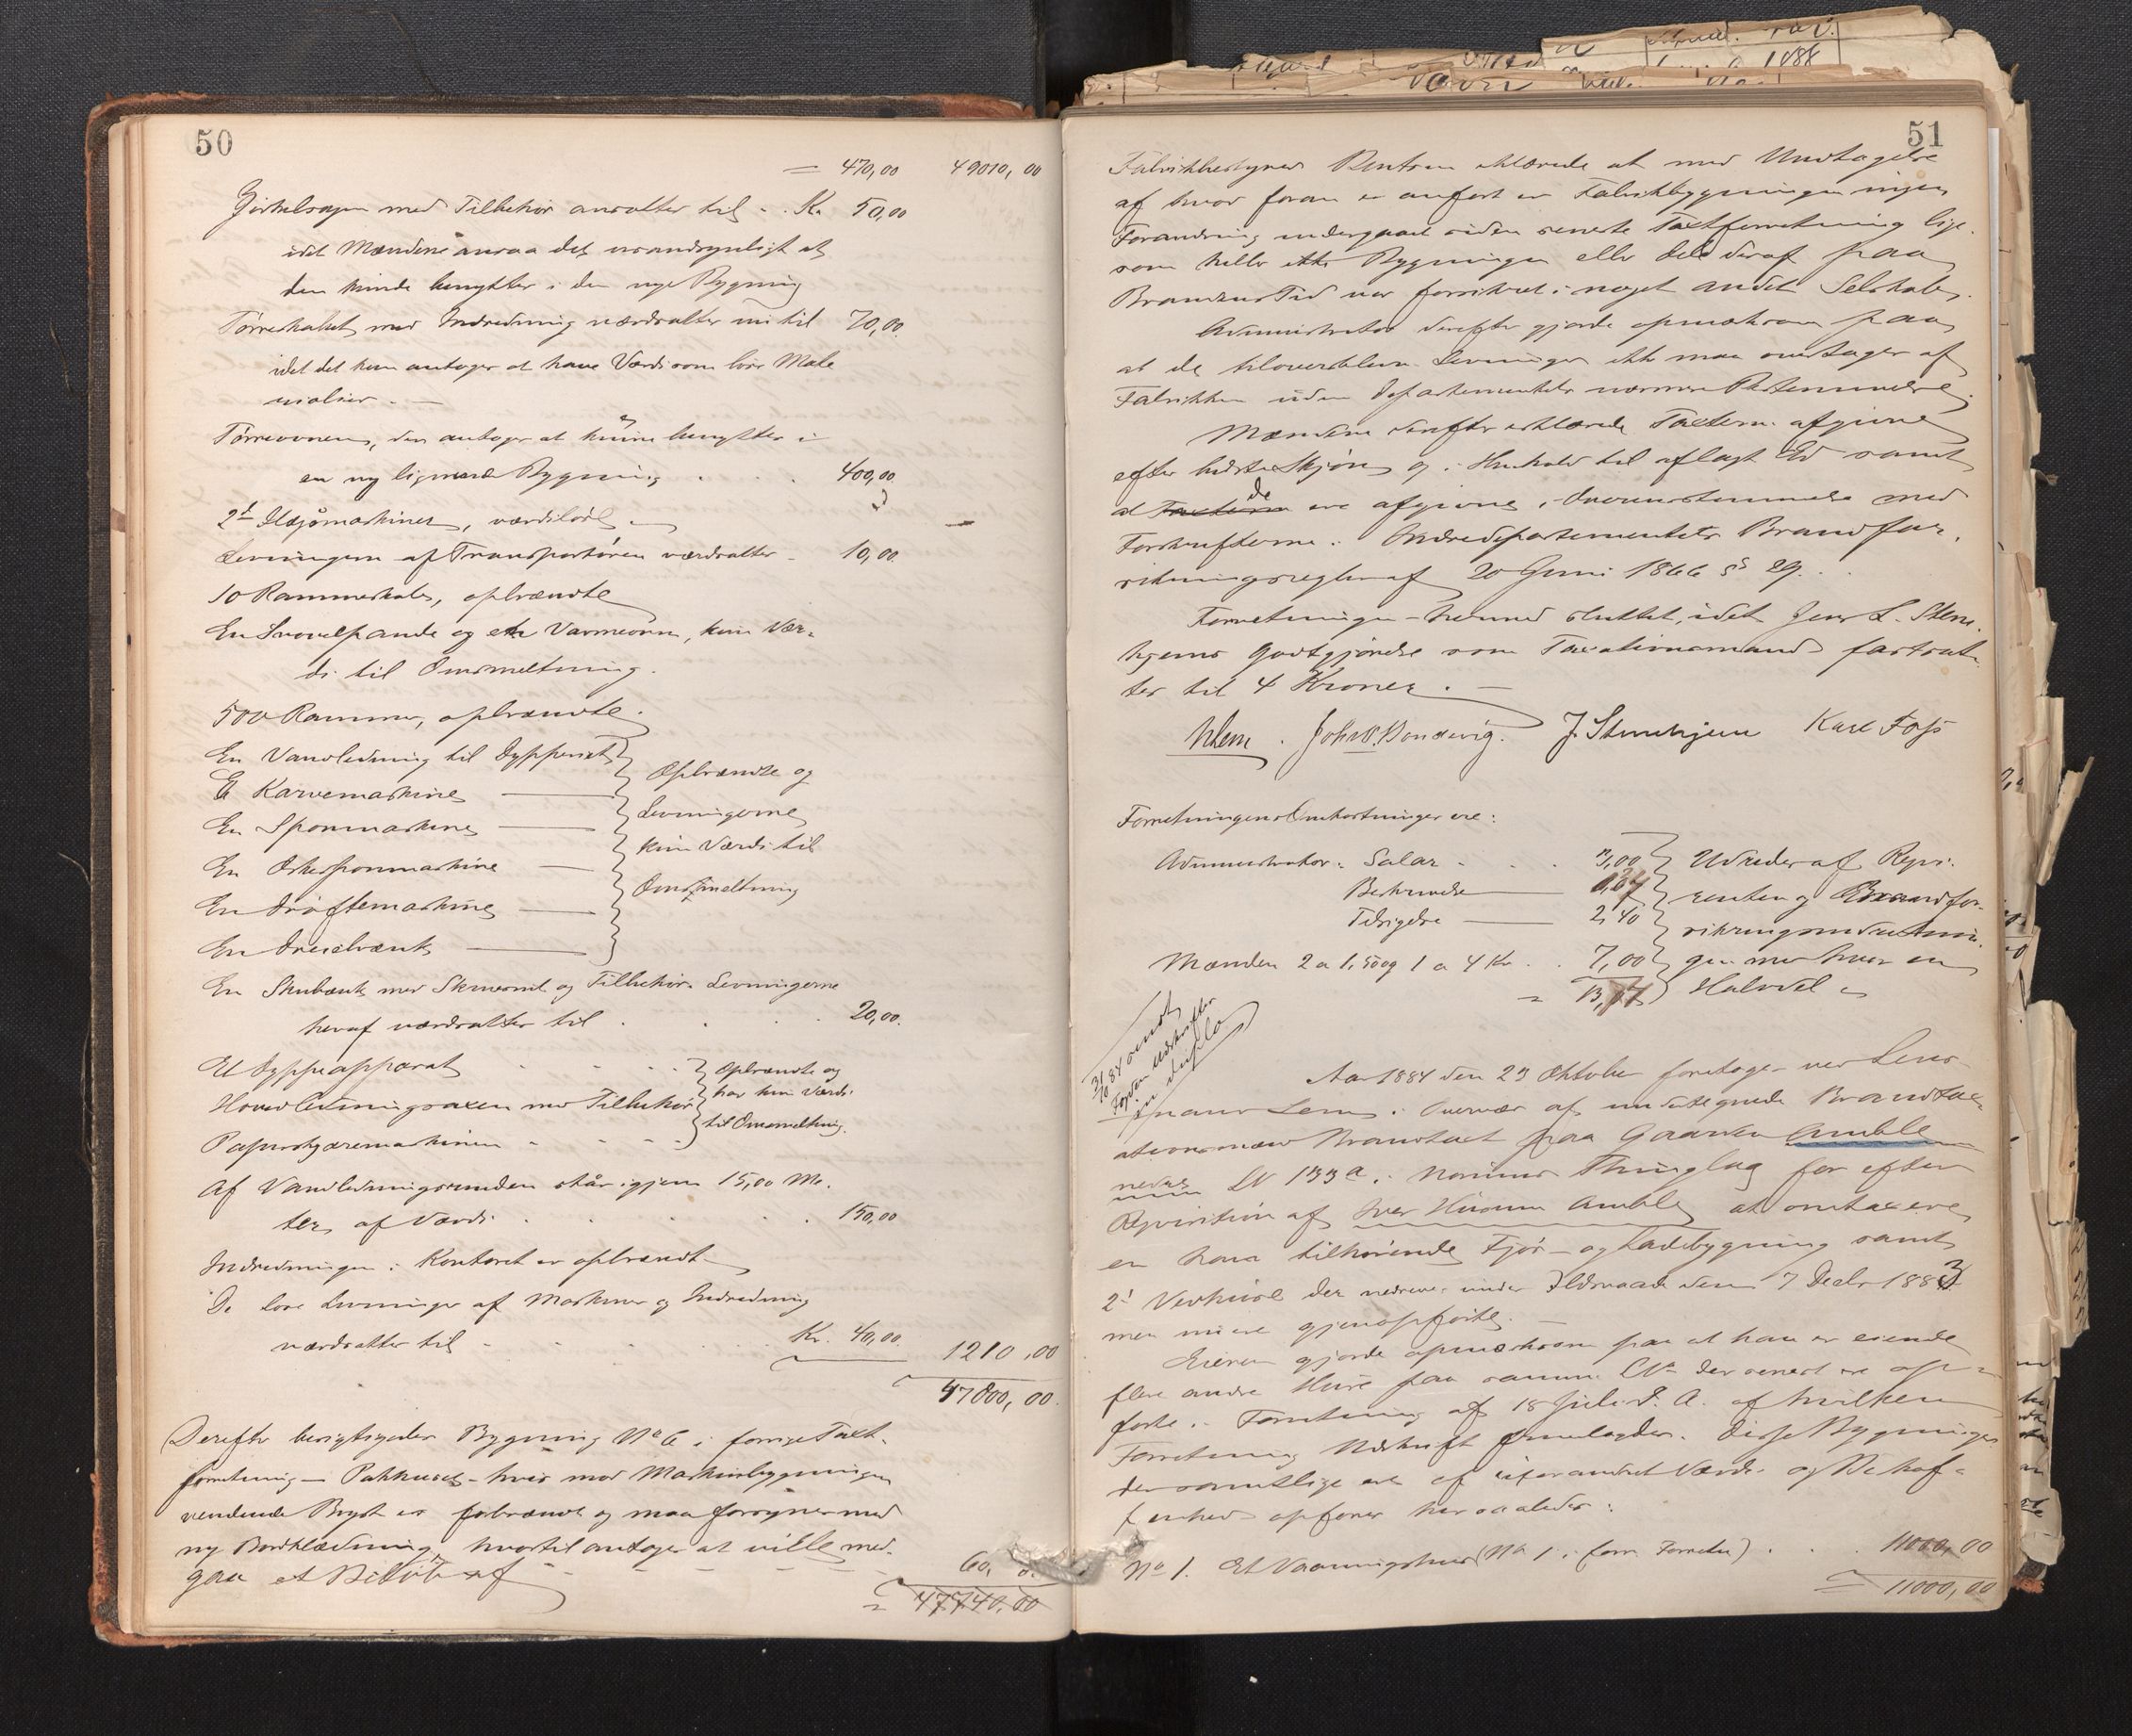 50
= 470,00 49010,00
Zirkelsagen med Tilbehør ansættes til - Kr. 50,00
idet Mændene ansaa det usandsynligt at
den kunde benyttes i den nye Bygning
Tørreskabet med Indredning værdsættes nu til 70,00.
idet det kun antages at have Værdi som løse Mate
rialier. —
Tørreovnen, den antages at kunne benyttes i
en ny lignende Bygning . . . 400,00.
2de Høvlmaskiner, værdiløse — —
Levningerne af Transportøren værdsættes - 10,00.
10 Rammeskabe, opbrændte
En Svovelpande og en Varmeovn, kun Vær-
di til Omsmeltning.
500 Rammer, opbrændte.
En Vandledning til Dypperiet
En Karvemaskine —
En Sponmaskine —
En Æskesponmaskine —
En Drøftemaskine —
En Dreiebænk —
Opbrændte og
Levningerne
kun Værdi til
Omsmeltning
En Skrubænk med Skruestik og Tilbehør. Levningerne
heraf værdsættes til . . . . 20,00.
Et Dyppeapparat - - - -
Hovedledningsaxen med Tilbehør
Papirskjæremaskinen - - - -
Opbrændte og
har kun Værdi
til Omsmeltning.
Af Vandledningsrenden står igjen 15,00 Me-
ter, af Værdi . . . . . 150,00
Indredningen i Kontoret er opbrændt
De løse Levninger af Maskiner og Indredning
værdsættes til - - - Kr. 40,00. 1210,00
47800,00.
Derefter besigtigedes Bygning No 6 i forrige Taxt-
forretning — Pakhuset - hvis mod Maskinbygningen
vendende Bryst er forbrændt og maa forsynes med
ny Bordklædning, hvortil antages at ville med-
gaa et Beløb af - - - - - 60,
= 47740,00
51
Fabrikbestyrer Bentsen erklærede at med Undtagelse
af hvad foran er anført er Fabrikbygningen ingen
Forandring undergaaet siden seneste Taxtforretning lige-
som heller ikke Bygningen eller dele deraf paa
Brandens Tid var forsikret i noget andet Selskab.
Administrator derefter gjorde opmærksom paa
at de tiloversblevne Levninger ikke maa modtages af
Fabrikken uden Departementets nærmere Bestemmelse.
Mændene derefter erklærede Taxterne afgivne
efter bedste Skjøn og i Henhold til aflagt Ed samt
at Taxterne de ere afgivne i Overensstemmelse med
Forskrifterne i Indredepartementets Brandfor-
sikringsregler af 20 Juni 1866 § 29. . .
Forretningen hermed sluttet, idet Jens L. Sten-
hjems Godtgjørelse som Taxationsmand fastsat-
tes til 4 Kroner. —
Lem. Johs O. Hondevig. J. Stenehjem Karl Foss
Forretningens Omkostninger ere:
Administrator: Salar - . . 3,00
Beskrivelse —
Tilsigelse — 2,40
Mændene 2 a 1,50 og 1 a 4 Kr. . 7,00
=
Udredes af Rekvi-
renten og Brandfor-
sikringsindretnin-
gen med hver en
Halvdel
31/10 84 sendt
Fogden Udskrifter
in duplo
Aar 1884 den 23 Oktober foretoges ved Lens-
mand Lem i Overvær af undertegnede Brandtax-
ationsmænd Brandtaxt paa Gaarden Amble
nedre LN 133a i Norums Thinglag for efter
Rekvisition af Iver Husum Amble at omtaxere
en ham tilhørende Fjøs- og Ladebygning samt
2de Vedhuse der nedreves under Ildsvaade den 7 Decbr 1883
men nu ere gjenopførte. —
Eieren gjorde opmærksom paa at han er eiende
flere andre Huse paa samme LN der senest ere op-
førte i Forretning af 18 Juli d. A. af hvilken
Forretning Udskrift fremlagdes. Disse Bygninger
der samtlige ere af uforandret Værdi og Beskaf-
fenhed opføres her saaledes:
No 1. Et Vaaningshus (No 1 i forr. Forretn) . . . 11000,00
= 11000,00